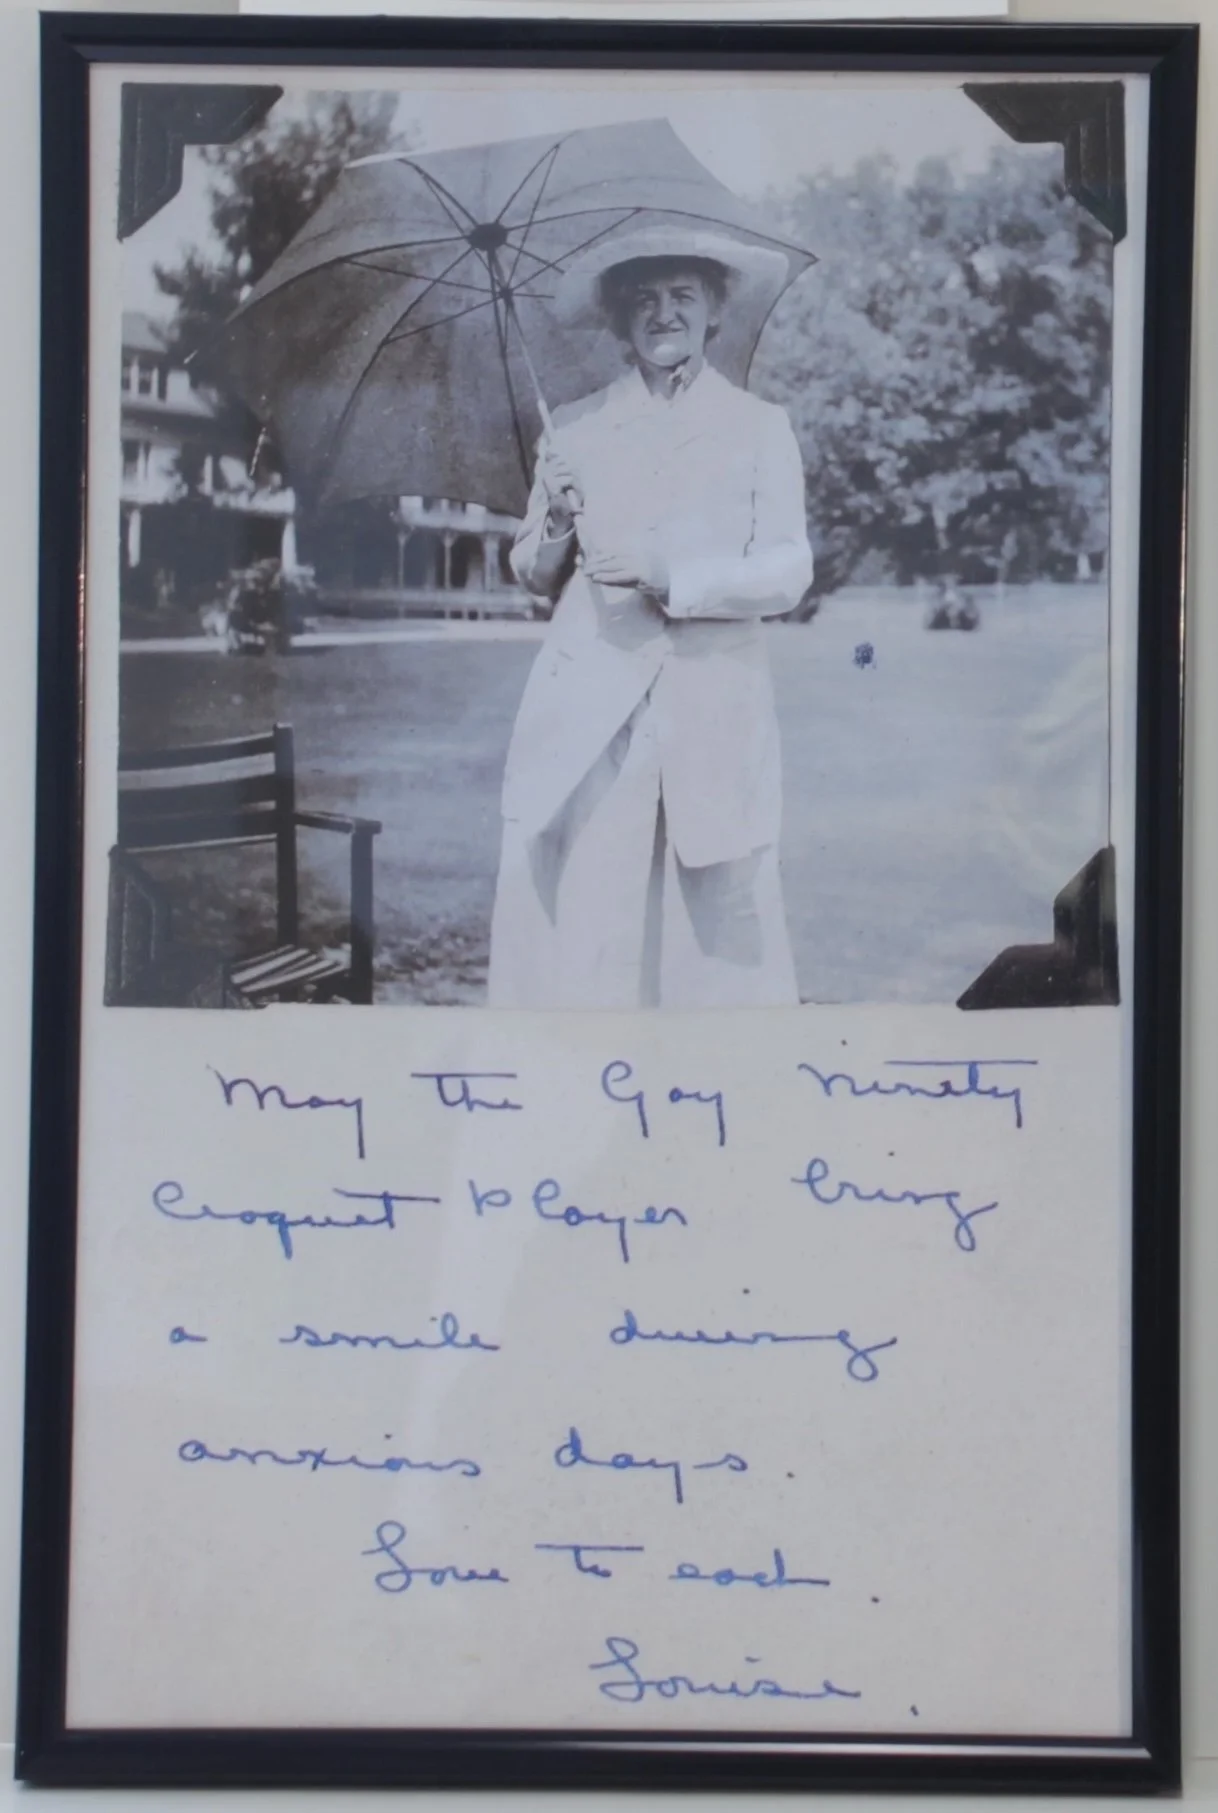 May the Gay Ninety
Croquet Player bring
a smile during
anxious days.
Love to each.
Louise.